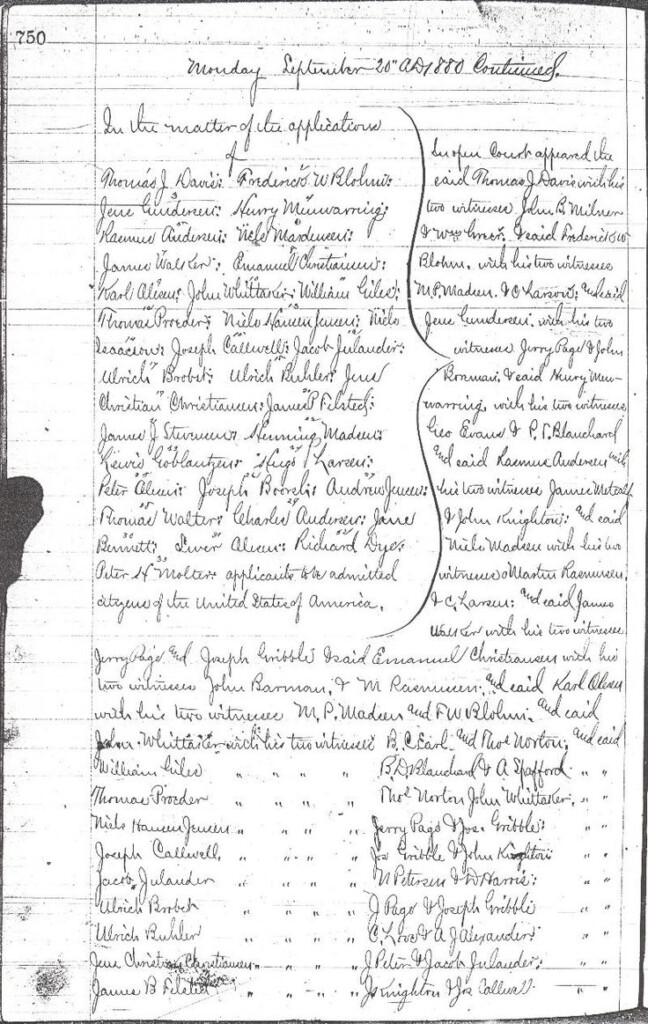 750
Monday September 20" AD 1880 Continued.
In the matter of the applications
of
Thomas J Davis: Frederick W Blohm:
Jens Gundersen: Henry Munwarring:
Rasmus Andersen: Niels Mardensen:
James Walker: Emanuel Christiansen:
Karl Olsen: John Whittaker: William Giles:
Thomas Procder: Niels Hansen Jensen: Niels
Isaacson: Joseph Callwell: Jacob Julander:
Ulrich Brobst: Ulrich Buhler: Jens
Christian Christiansen: James P Filsted:
James J Stevensen: Henning Madsen:
Lewis Hugo Larsen:
Peter Olsen: Joseph Andrew Jensen:
Thomas Walter: Charles Andersen: Jane
Bennett: Iwer Olsen: Richard Dye:
Peter H Molter: applicants to be admitted
citizens of the United States of America.
In open Court appeared the
said Thomas J Davis with his
two witnesses John B. Milner
& Wm Greer. & said Frederick W
Blohm. with his two witnesses
M. P. Madsen. & O Larson: and said
Jens Gundersen. with his two
witnesses Jerry Page & John
Boxman. & said Henry Mun-
warring. with his two witnesses
Geo Evans & P. D Blanchard
and said Rasmus Andersen with
his two witnesses James Metcalf
& John Knighton: and said
Niels Madsen with his two
witnesses Martin Rasmusen.
& C. Larsen: and said James
Walker with his two witnesses
Jerry Page and Joseph Gribble & said Emanuel Christiansen with his
two witnesses John Barman. & M Rasmusen: and said Karl Olsen
with his two witnesses M. P. Madsen and F W Blohm. and said
John Whittaker with his two witnesses B. C. Earl. and Thos Norton. and said
William Giles " " " " B. D. Blanchard & A Spafford " "
Thomas Procder " " " " Thos Norton John Whittaker: " "
Niels Hansen Jensen " " " " Jerry Page & Jos. Gribble: " "
Joseph Callwell. " " " " Jos Gribble & John Knighton " "
Jacob Julander " " " " N Petersen & D Harris: " "
Ulrich Brobst " " " " J Page & Joseph Gribble " "
Ulrich Buhler " " " " C. Love & A J Alexander: " "
Jens Christian Christiansen " " " " J Peter & Jacob Julander: " "
James B Filsted " " " " Js Knighton & Jos Callwell " "